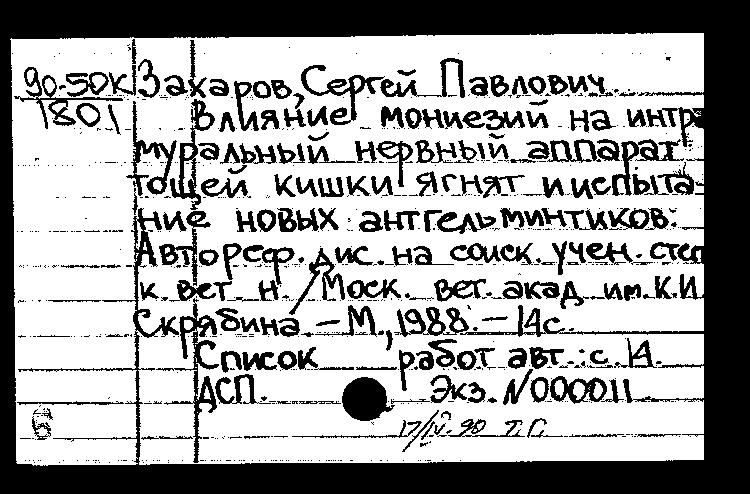 90-50К Захаров, Сергей Павлович
1801 Влияние мониезий на интра
муральный нервный аппарат
тощей кишки ягнят и испыта-
ние новых антгельминтиков:
Автореф. дис. на соиск. учен. степ
к. вет. н. / Моск. вет. акад. им. К.И.
Скрябина. – М., 1988. – 14с.
Список работ авт.: с. 14.
ДСП. Экз. N000011
6
17/IV-90 Т.Г.